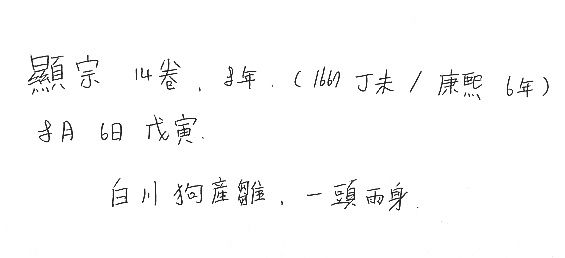 顯宗 14卷, 8年. (1667 丁未 / 康熙 6年)
8月 6日 戊寅.
白川狗産雛, 一頭兩身.